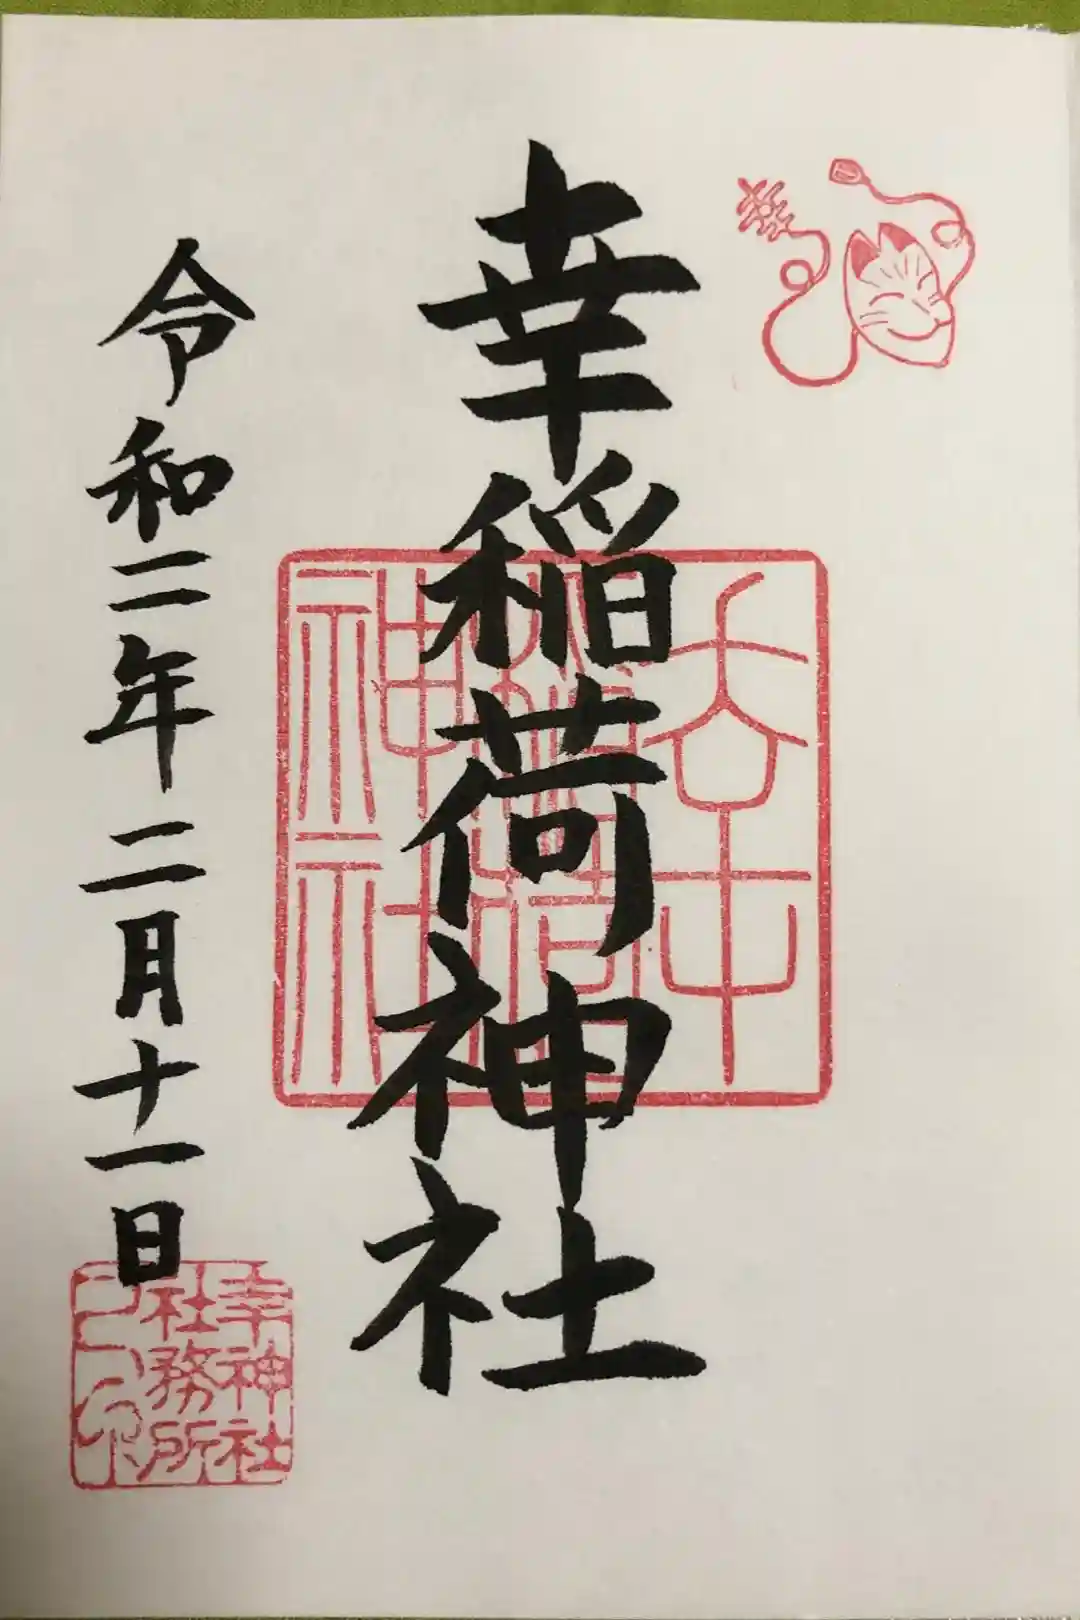 幸
幸稲荷神社
幸稲荷神社
令和二年二月十一日
幸神社
社務所
之印